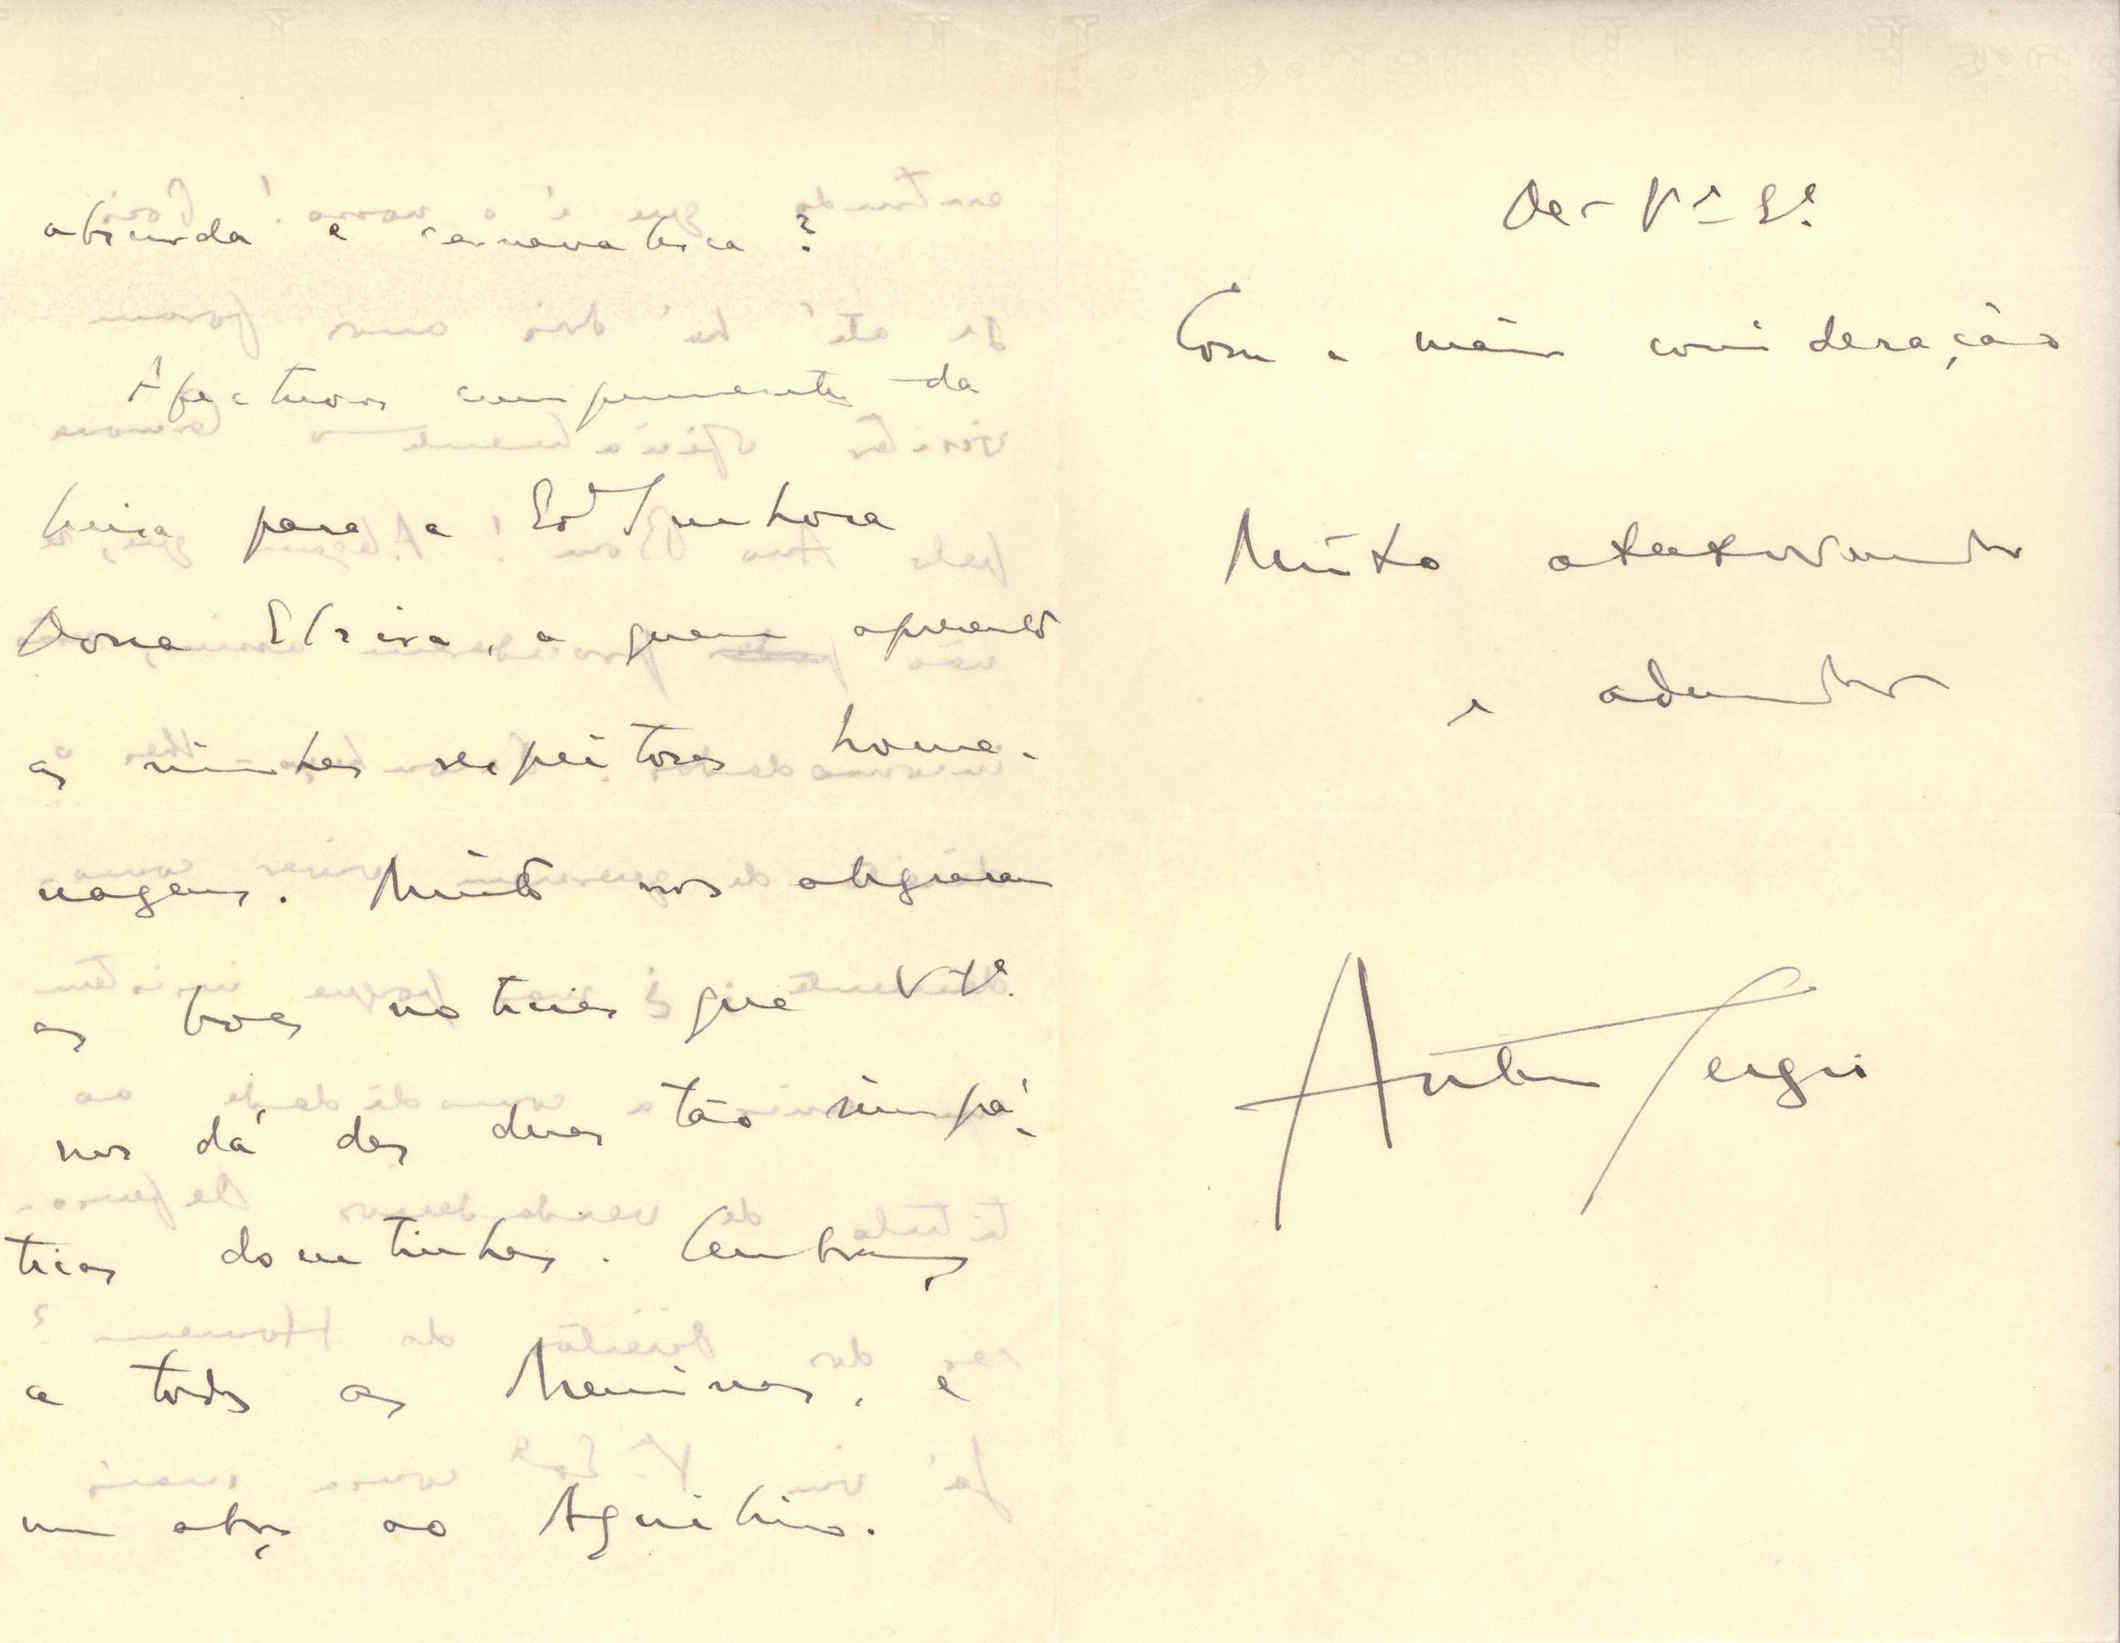 absurda e carnavalesca?
Afectuosos cumprimentos da
Luísa para a Ex.ª Senhora
Dona Elzira, a quem apresento
as minhas respeitosas home-
nagens. Muito nos alegraram
as boas notícias que V. Ex.ª
nos dá das duas tão simpá-
ticas doentinhas. Lembranças
a todas as Meninas, e
um abraço ao Aquilino.
De V.ª E.ª
Com a maior consideração
Muito atento venerador
e admirador
António Sérgio